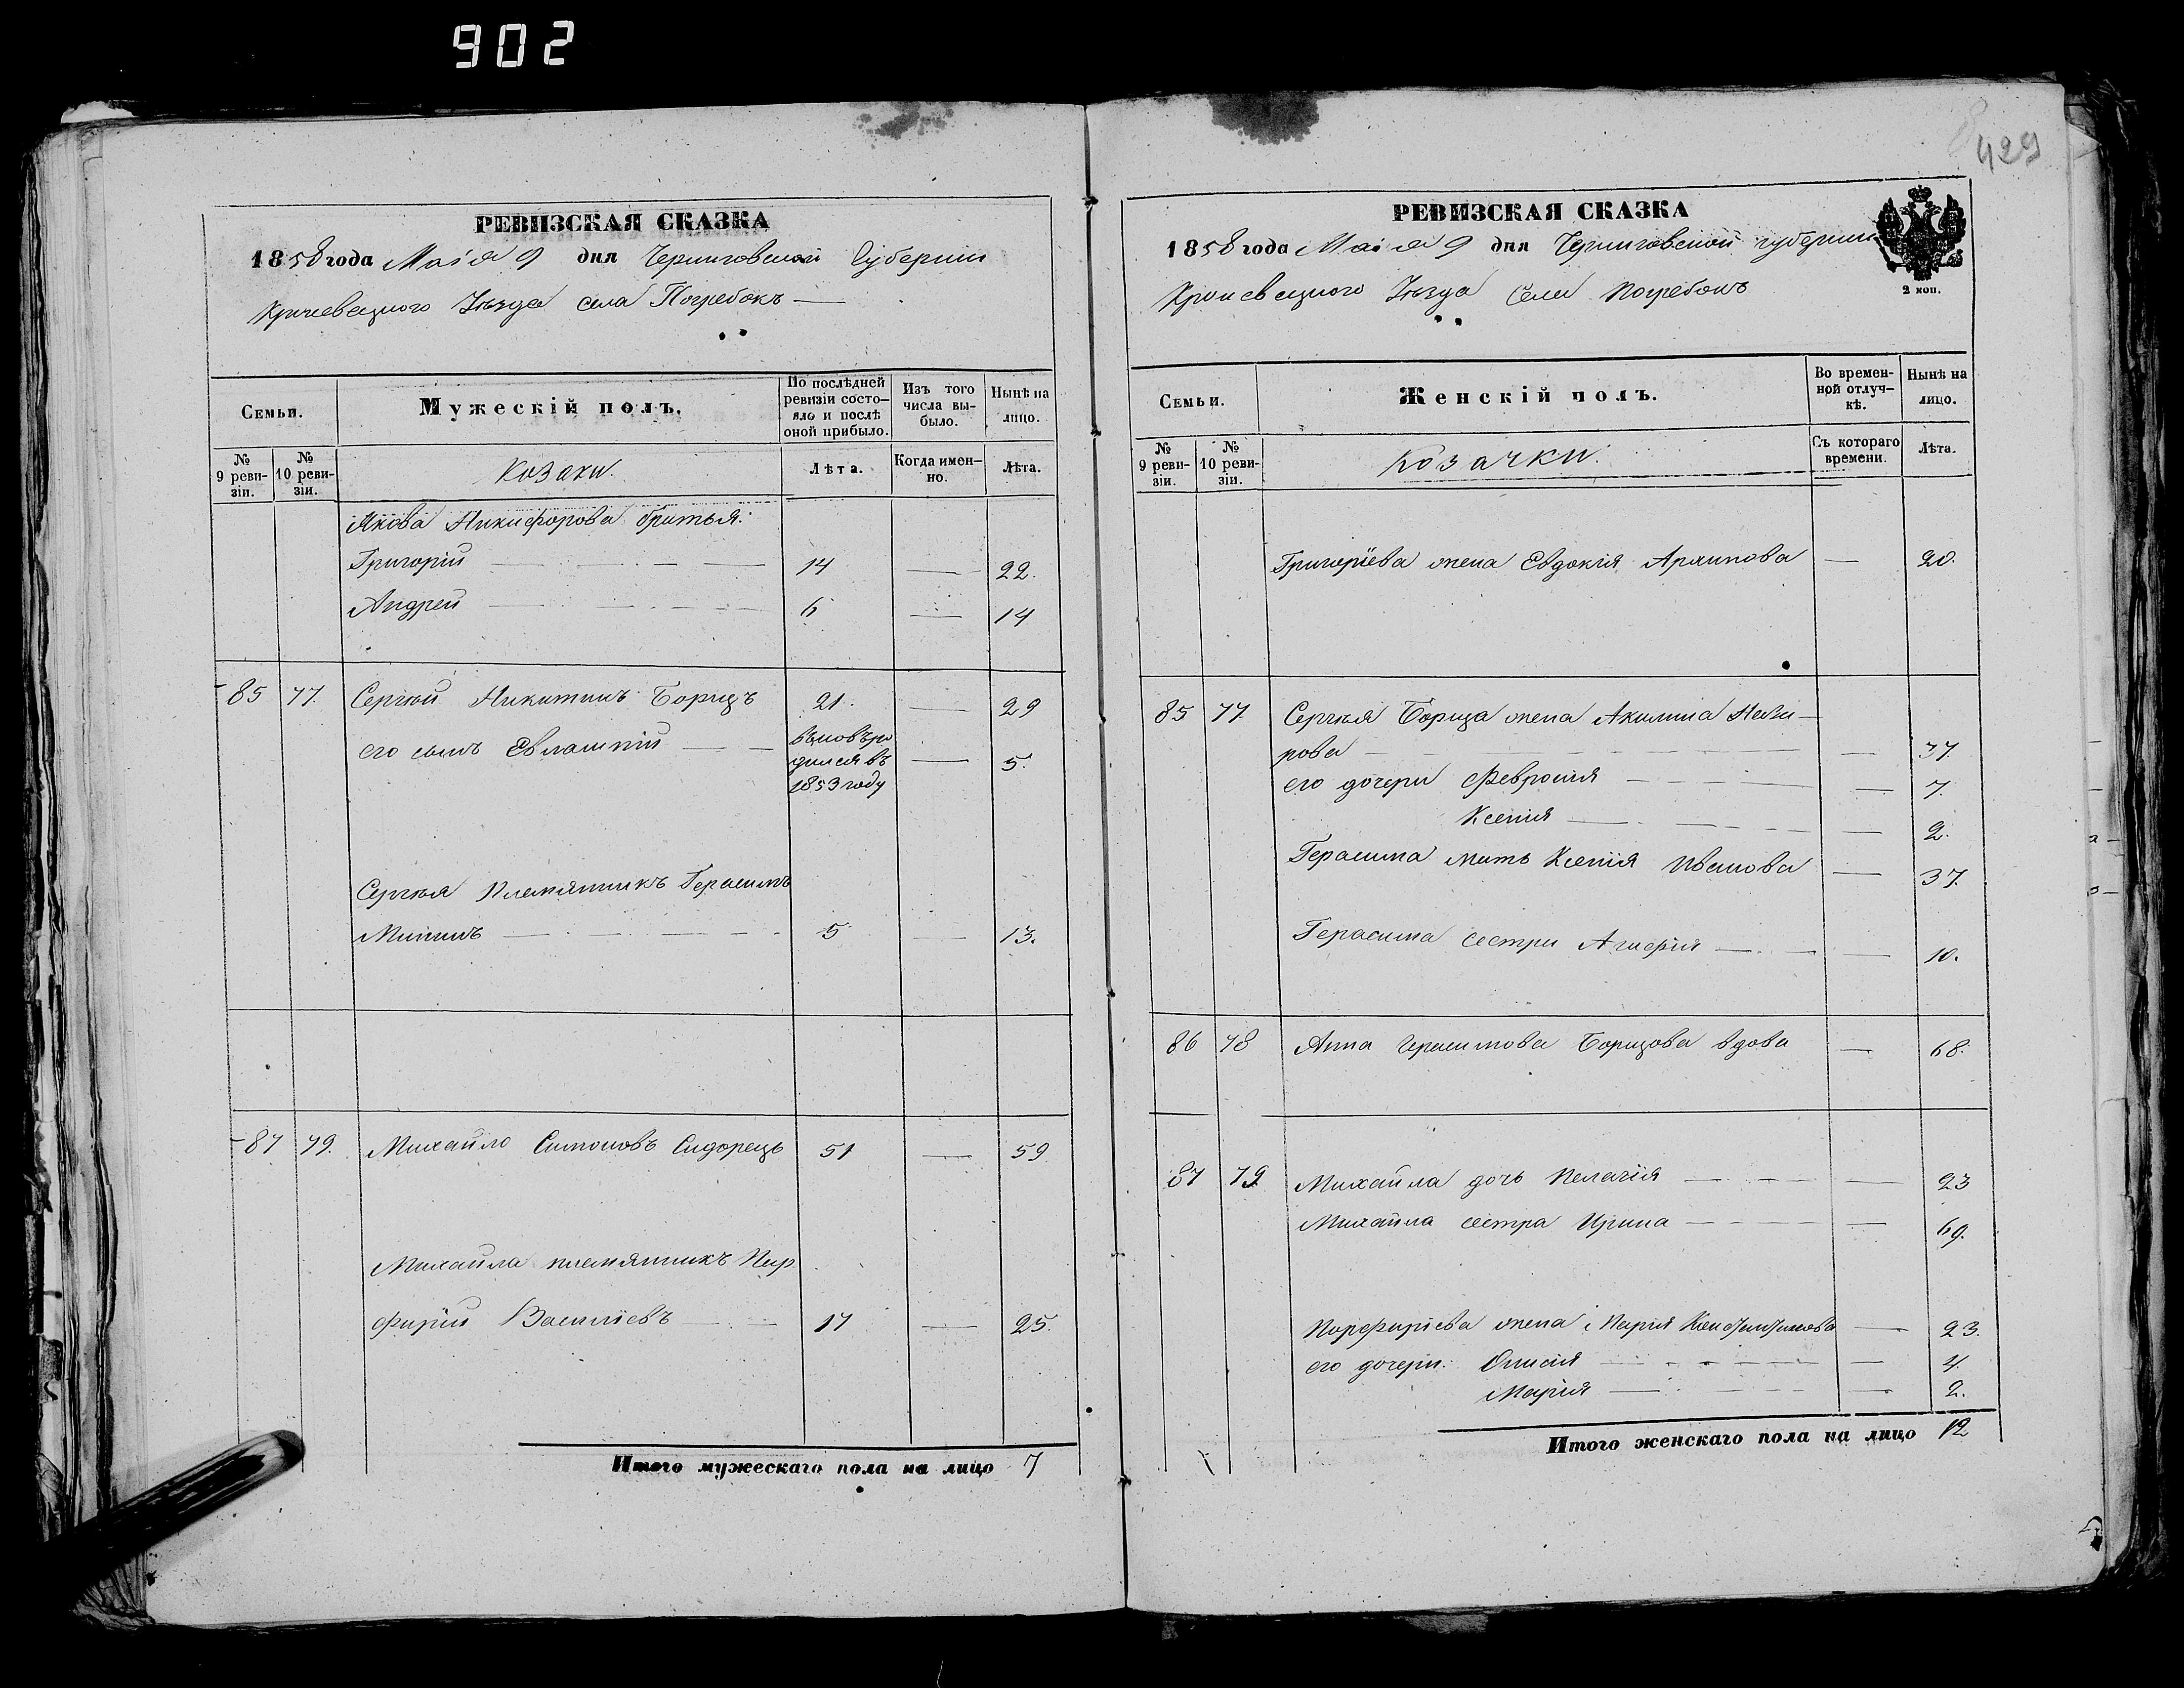 902
429
РЕВИЗСКАЯ СКАЗКА
1858 года Маія 9 дня Черниговской Губерніи
Кролевецкого Уѣзда села Погребокъ
Семьи.
Мужескій полъ.
По послѣдней ревизіи состояло и послѣ оной прибыло.
Изъ того числа выбыло.
Нынѣ на лицо.
№ 9 ревизіи.
№ 10 ревизіи.
Козаки.
Лѣта.
Когда именно.
Лѣта.
Якова Никифорова братья:
Григорій — 14 — 22.
Андрей — 6 — 14
85 77. Сергѣй Никитинъ Борицъ 21. — 29
его сынъ Евлампій — вновь родился въ 1853 году — 5.
Сергѣя племянникъ Герасимъ
Мининъ — 5 — 13.
87 79. Михайло Симоновъ Сидорецъ 51 — 59
Михайла племянникъ Пор
фирій Василіевъ — 17 — 25.
Итого мужескаго пола на лицо 7
РЕВИЗСКАЯ СКАЗКА
1858 года Маія 9 дня Черниговской губерніи
Кролевецкого Уѣзда Села Погребокъ
2 коп.
Семьи.
Женскій полъ.
Во временной отлучкѣ.
Нынѣ на лицо.
№ 9 ревизіи.
№ 10 ревизіи.
Козачки.
Съ котораго времени.
Лѣта.
Григоріева жена Евдокія Архипова — 20.
85 77 Сергѣя Борица жена Акилина Наза-
рова — 37.
его дочери Февронія — 7.
Ксенія — 2.
Герасима мать Ксенія Иванова — 37.
Герасима сестра — 10.
86 78 Анна Герасимова Борицова вдова — 68.
87 79 Михайла дочь Пелагія — 23
Михайла сестра Ирина — 69.
Порфиріева жена Марія — 23.
его дочери: Онисія — 4.
Марія — 2.
Итого женскаго пола на лицо 12